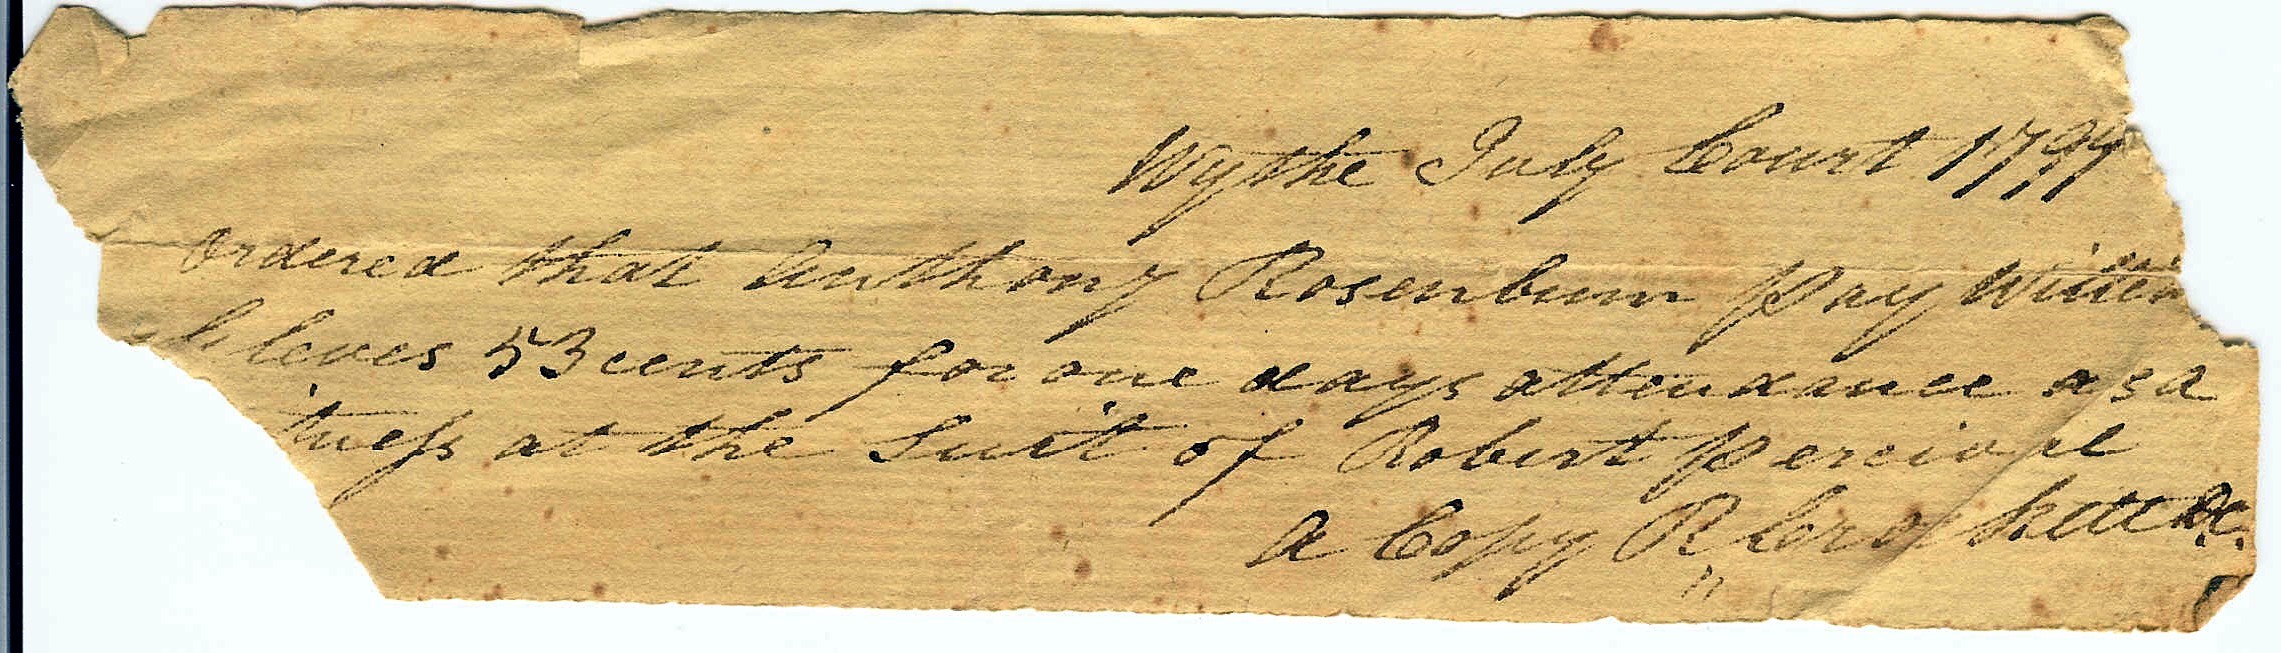 Wythe July Court 1797
Ordered that Anthony Rosenbum pay Willia
leves 53 cents for one days attendance as a
itness at the Suit of Robert Percival
A Copy R Crockett DC.